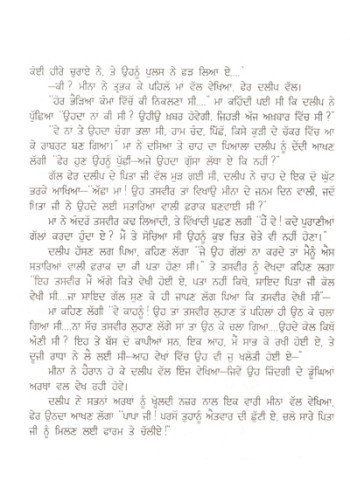 ਕੋਈ ਹੀਰੇ ਚੁਰਾਏ ਨੇ, ਤੇ ਉਹਨੂੰ ਪੁਲਸ ਨੇ ਫੜ ਲਿਆ ਏ...."
—ਕੀ ? ਮੀਨਾ ਨੇ ਤ੍ਰਭਕ ਕੇ ਪਹਿਲੋਂ ਮਾਂ ਵੱਲ ਵੇਖਿਆ, ਫੇਰ ਦਲੀਪ ਵੱਲ।
"ਹੋਰ ਭੈੜਿਆਂ ਕੰਮਾਂ ਵਿੱਚੋਂ ਕੀ ਨਿਕਲਣਾ ਸੀ...." ਮਾਂ ਕਹਿੰਦੀ ਪਈ ਸੀ ਕਿ ਦਲੀਪ ਨੇ
ਪੁੱਛਿਆ "ਉਹਦਾ ਨਾਂ ਕੀ ਸੀ ? ਉਹੀਓ ਖ਼ਬਰ ਹੋਵੇਗੀ, ਜਿਹੜੀ ਅੱਜ ਅਖ਼ਬਾਰ ਵਿੱਚ ਸੀ ?"
"ਵੇ ਨਾ ਤੇ ਉਹਦਾ ਚੰਗਾ ਭਲਾ ਸੀ, ਰਾਮ ਚੰਦ, ਪਿੱਛੋਂ, ਕਿਸੇ ਕੁੜੀ ਦੇ ਚੱਕਰ ਵਿੱਚ ਆ
ਕੇ ਰਾਬਰਟ ਬਣ ਗਿਆ।" ਮਾਂ ਨੇ ਦਸਿਆ ਤੇ ਚਾਹ ਦਾ ਪਿਆਲਾ ਦਲੀਪ ਨੂੰ ਦੇਂਦੀ ਆਖਣ
ਲੱਗੀ "ਫੇਰ ਹੁਣ ਉਹਨੂੰ ਪੁੱਛੀਂ—ਅਜੇ ਉਹਦਾ ਗੁੱਸਾ ਲੱਥਾ ਏ ਕਿ ਨਹੀਂ ?"
ਗੱਲ ਫੇਰ ਦਲੀਪ ਦੇ ਪਿਤਾ ਜੀ ਵੱਲ ਮੁੜ ਗਈ ਸੀ, ਦਲੀਪ ਨੇ ਚਾਹ ਦੇ ਇਕ ਦੋ ਘੁੱਟ
ਭਰਕੇ ਆਖਿਆ—"ਅੱਛਾ ਮਾਂ ! ਉਹ ਤਸਵੀਰ ਤਾਂ ਵਿਖਾਉ ਮੀਨਾ ਦੇ ਜਨਮ ਦਿਨ ਵਾਲੀ, ਜਦੋਂ
ਪਿਤਾ ਜੀ ਨੇ ਉਹਦੇ ਲਈ ਸਤਾਰਿਆਂ ਵਾਲੀ ਫਰਾਕ ਬਣਵਾਈ ਸੀ ?"
ਮਾਂ ਨੇ ਅੰਦਰੋਂ ਤਸਵੀਰ ਕਢ ਲਿਆਂਦੀ, ਤੇ ਵਿਖਾਂਦੀ ਪੁਛਣ ਲਗੀ "ਹੈਂ ਵੇ ! ਕਦੋਂ ਪੁਰਾਣੀਆਂ
ਗੱਲਾਂ ਕਰਦਾ ਹੁੰਦਾ ਏ ? ਮੈਂ ਤੇ ਸੋਚਿਆ ਸੀ ਉਹਨੂੰ ਕੁਝ ਚਿਤ ਚੇਤੇ ਵੀ ਨਹੀਂ ਹੋਣਾ।"
ਦਲੀਪ ਹੱਸਣ ਲਗ ਪਿਆ, ਕਹਿਣ ਲੱਗਾ "ਜੇ ਉਹ ਗੱਲਾਂ ਨਾ ਕਰਦੇ ਤਾਂ ਮੈਨੂੰ ਐਸ
ਸਤਾਰਿਆਂ ਵਾਲੀ ਫਰਾਕ ਦਾ ਕੀ ਪਤਾ ਹੋਣਾ ਸੀ।" ਤੇ ਤਸਵੀਰ ਨੂੰ ਵੇਖਦਾ ਕਹਿਣ ਲਗਾ
"ਇਹ ਤਸਵੀਰ ਮੈਂ ਅੱਗੇ ਕਿਤੇ ਵੇਖੀ ਹੋਈ ਏ, ਪਤਾ ਨਹੀਂ ਕਿਥੇ, ਸ਼ਾਇਦ ਪਿਤਾ ਜੀ ਕੋਲ
ਵੇਖੀ ਸੀ....ਜਾਂ ਸ਼ਾਇਦ ਗੱਲ ਸੁਣ ਕੇ ਹੀ ਜਾਪਣ ਲੱਗ ਪਿਆ ਕਿ ਤਸਵੀਰ ਵੇਖੀ ਸੀ"—
ਮਾਂ ਕਹਿਣ ਲੱਗੀ "ਵੇ ਕਾਹਨੂੰ ! ਉਹ ਤਾਂ ਤਸਵੀਰ ਲੁਹਾਣ ਤੋਂ ਪਹਿਲਾਂ ਹੀ ਉਠ ਕੇ ਚਲਾ
ਗਿਆ ਸੀ....ਨਾ ਸੱਚ ਤਸਵੀਰ ਲੁਹਾਣ ਲੱਗੇ ਸਾਂ ਤਾਂ ਉਠ ਕੇ ਚਲਾ ਗਿਆ....ਉਹਦੇ ਕੋਲ ਕਿਥੋਂ
ਔਣੀ ਸੀ ? ਇਹ ਤੇ ਬੱਸ ਦੋ ਕਾਪੀਆਂ ਸਨ, ਇਕ ਆਹ, ਮੈਂ ਸਾਂਭ ਕੇ ਰਖੀ ਹੋਈ ਏ, ਤੇ
ਦੂਜੀ ਰਾਧਾ ਨੇ ਲੈ ਲਈ ਸੀ—ਆਹ ਵੇਖਾਂ ਵਿੱਚ ਉਹ ਵੀ ਜੁ ਖਲੋਤੀ ਹੋਈ ਏ—"
ਮੀਨਾ ਨੇ ਹੈਰਾਨ ਹੋ ਕੇ ਦਲੀਪ ਵੱਲ ਇੰਜ ਵੇਖਿਆ—ਜਿਵੇਂ ਉਹ ਜ਼ਿੰਦਗੀ ਦੇ ਡੂੰਘਿਆਂ
ਅਰਥਾਂ ਵਲ ਵੇਖ ਰਹੀ ਹੋਵੇ।
ਦਲੀਪ ਨੇ ਸਭਨਾਂ ਅਰਥਾਂ ਨੂੰ ਖੁੱਲਦੀ ਨਜ਼ਰ ਨਾਲ ਇਕ ਵਾਰੀ ਮੀਨਾ ਵੱਲ ਵੇਖਿਆ,
ਫੇਰ ਉਠਦਾ ਆਖਣ ਲੱਗਾ "ਪਾਪਾ ਜੀ ! ਪਰਸੋਂ ਤੁਹਾਨੂੰ ਐਤਵਾਰ ਦੀ ਛੁੱਟੀ ਏ, ਚਲੋ ਸਾਰੇ ਪਿਤਾ
ਜੀ ਨੂੰ ਮਿਲਣ ਲਈ ਫਾਰਮ ਤੇ ਚੱਲੀਏ !"